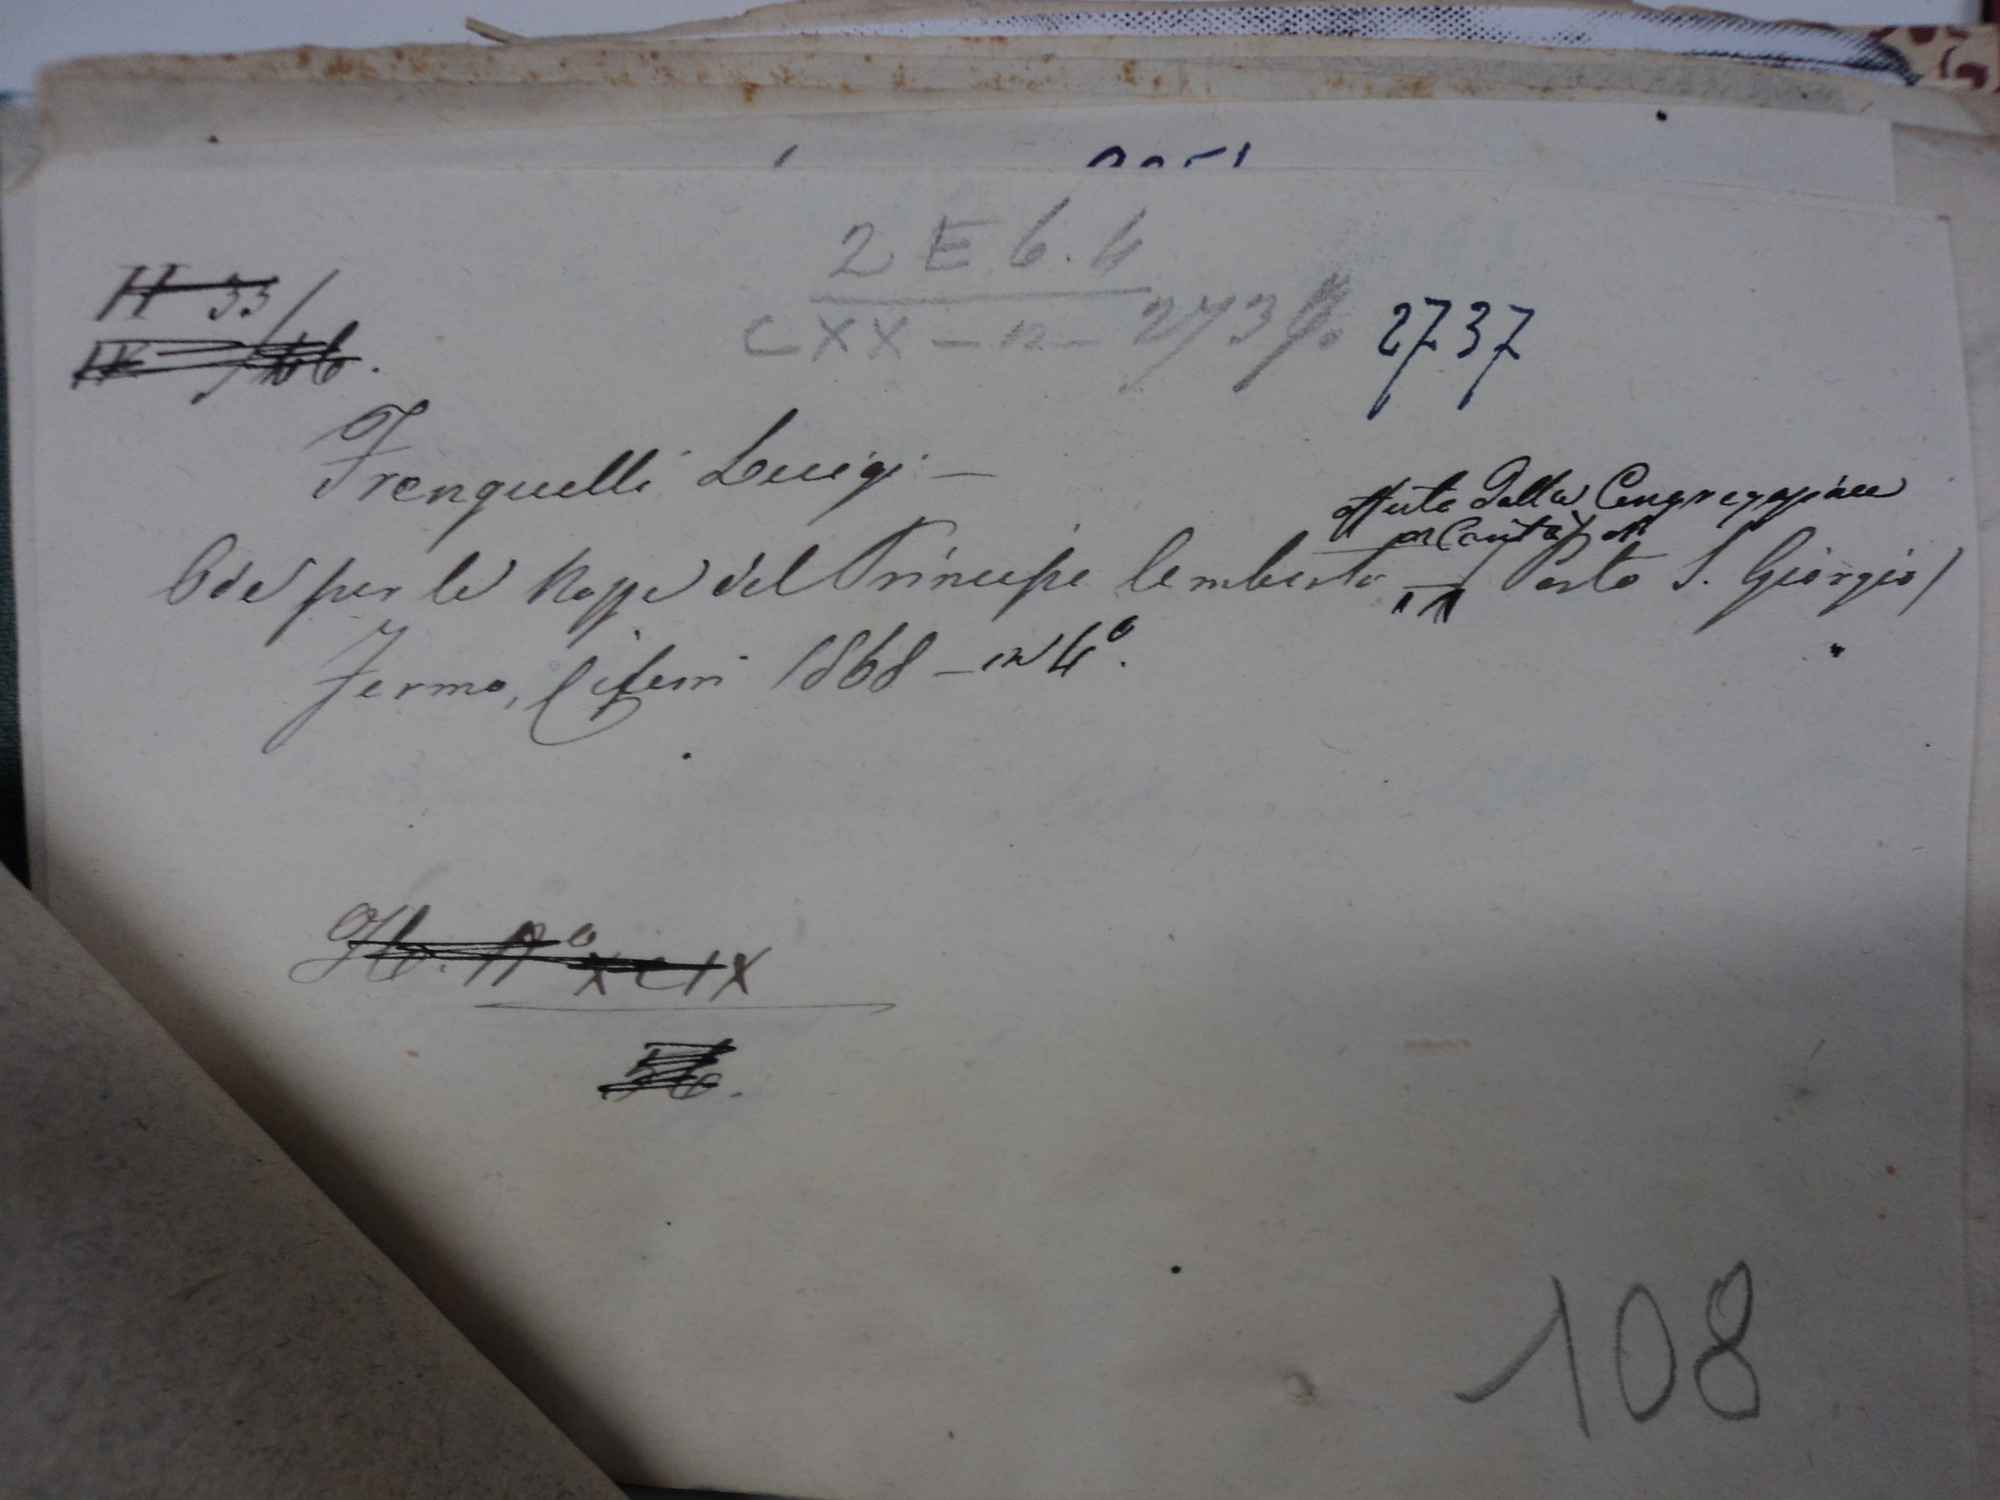 2 E 6. 4
H 33/
CXX - 12 - 273
2737
Frenquelli Luigi -
offerta dalla Congregazione
di Carità di
Ode per le Nozze del Principe Umberto Porto S. Giorgio)
Fermo, Ciferri 1868 - in 4°.
N° XCIX
108